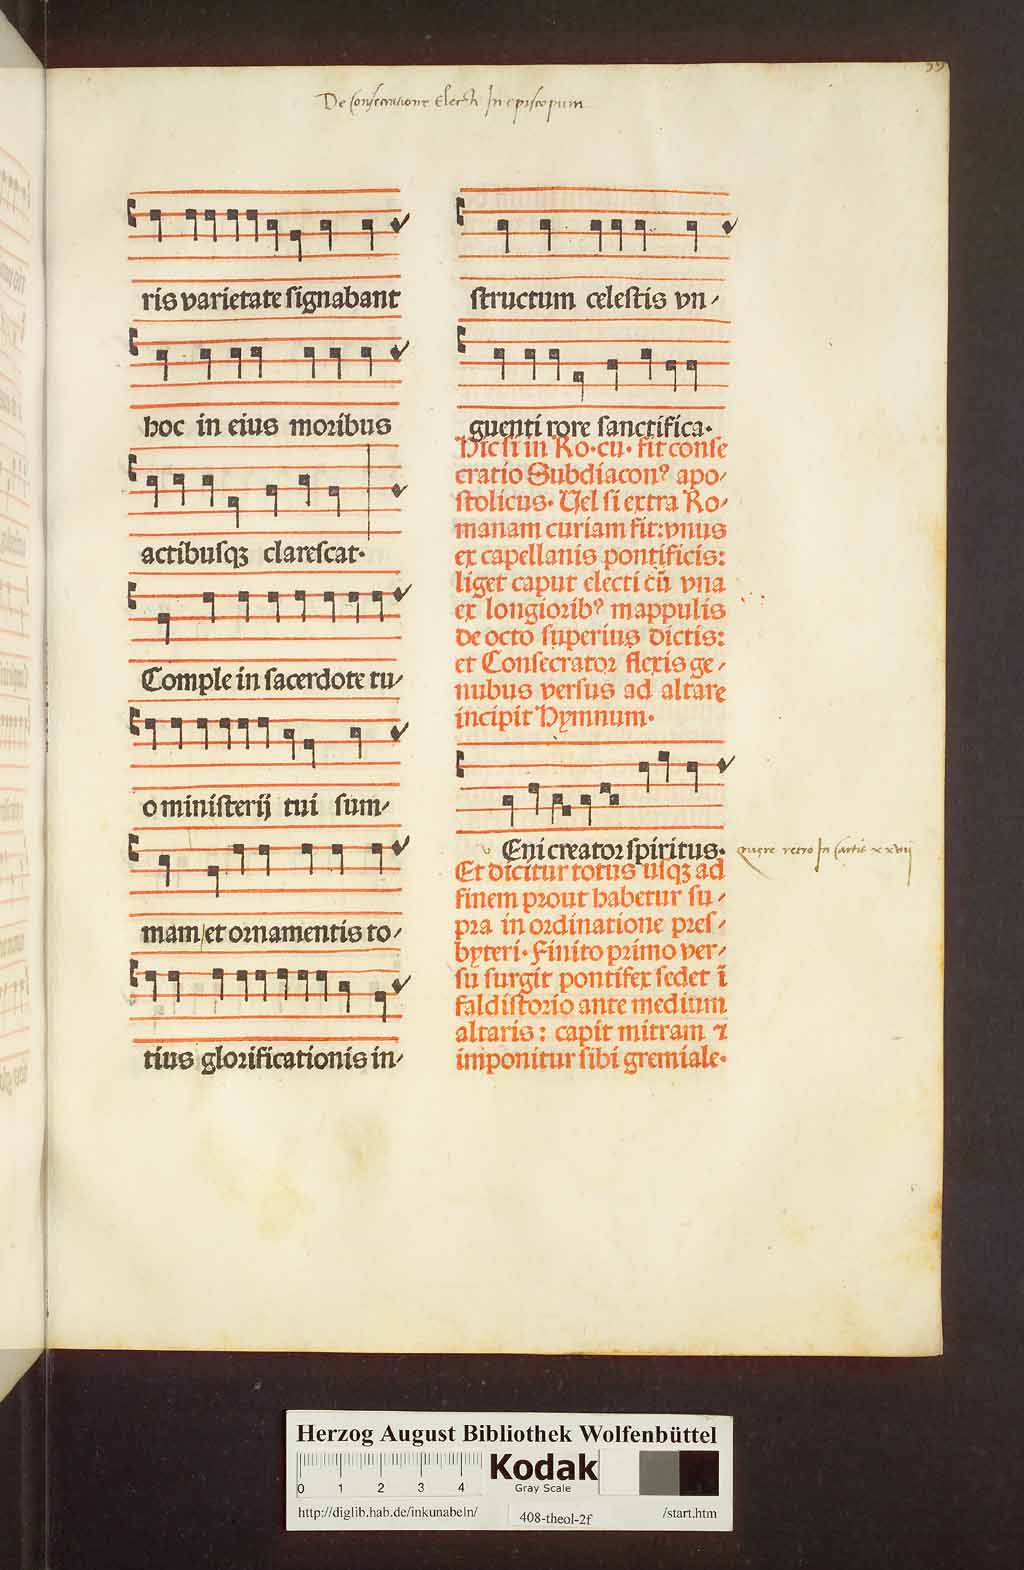 De Consecratione Electi In episcopum
ris varietate signabant
hoc in eius moribus
actibusqꝫ clarescat·
Comple in sacerdote tu⸗
o ministerij tui sum⸗
mam et ornamentis to⸗
tius glorificationis in⸗
structum celestis vn⸗
guenti rore sanctifica·
Hic si in Ro·cu· fit conse
cratio Subdiaconꝰ apo⸗
stolicus· Uel si extra Ro⸗
manam curiam fit: vnus
ex capellanis pontificis:
liget caput electi cū vna
ex longioribꝰ mappulis
de octo superius dictis:
et Consecrator flexis ge⸗
nubus versus ad altare
incipit Hymnum·
v Eni creator spiritus·
Quere retro In Cartis xxvij
Et dicitur totus usqꝫ ad
finem prout habetur su⸗
pra in ordinatione pres⸗
byteri· Finito primo ver⸗
su surgit pontifex sedet ī
faldistorio ante medium
altaris: capit mitram ⁊
imponitur sibi gremiale·
Herzog August Bibliothek Wolfenbüttel
0 1 2 3 4
Kodak
Gray Scale
http://diglib.hab.de/inkunabeln/
408-theol-2f
/start.htm